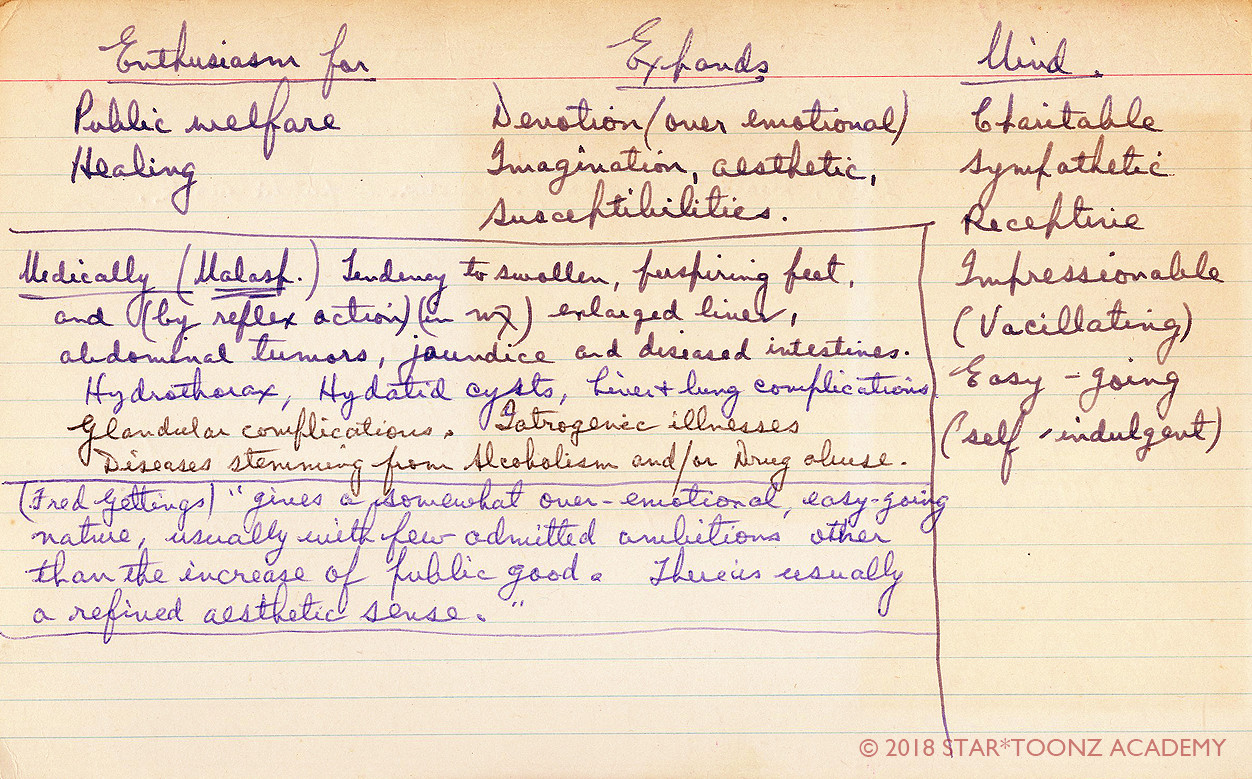 Enthusiasm for
Public welfare
Healing
Expands
Devotion (over emotional)
Imagination, aesthetic,
susceptibilities.
Mind.
Charitable
Sympathetic
Receptive
Impressionable
(Vacillating)
Easy-going
(self-indulgent)
Medically (Malasp.) Tendency to swollen, perspiring feet,
and (by reflex action) (in ♍) enlarged liver,
abdominal tumors, jaundice and diseased intestines.
Hydrothorax, Hydatid cysts, Liver + lung complications
Glandular complications. Iatrogenic illnesses
Diseases stemming from Alcoholism and/or Drug abuse.
(Fred Gettings) "gives a somewhat over-emotional, easy-going
nature, usually with few admitted ambitions other
than the increase of public good. There is usually
a refined aesthetic sense."
© 2018 STAR*TOONZ ACADEMY